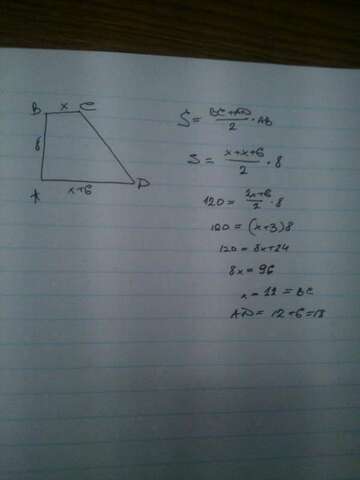 B x C
8
A x+6 D
S = BC+AD/2 · AB
S = x+x+6/2 · 8
120 = 2x+6/2 · 8
120 = (x+3)8
120 = 8x+24
8x = 96
x = 12 = BC
AD = 12+6=18